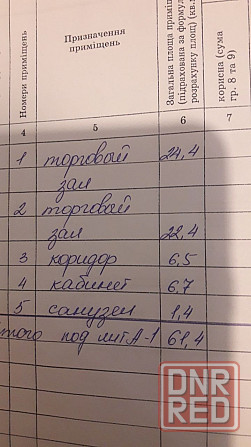 Номери приміщень
Призначення
приміщень
Загальна площа приміщ
(підрахована за формул
розрахунку площі (кв.
корисна (сума
гр. 8 та 9)
4 5 6 7
1 торговый 24,4
зал
2 торговый
зал 22,4
3 коридор 6,5
4 кабинет 6,7
5 санузел 1,4
того под литА-1 61,4
DNR
RED